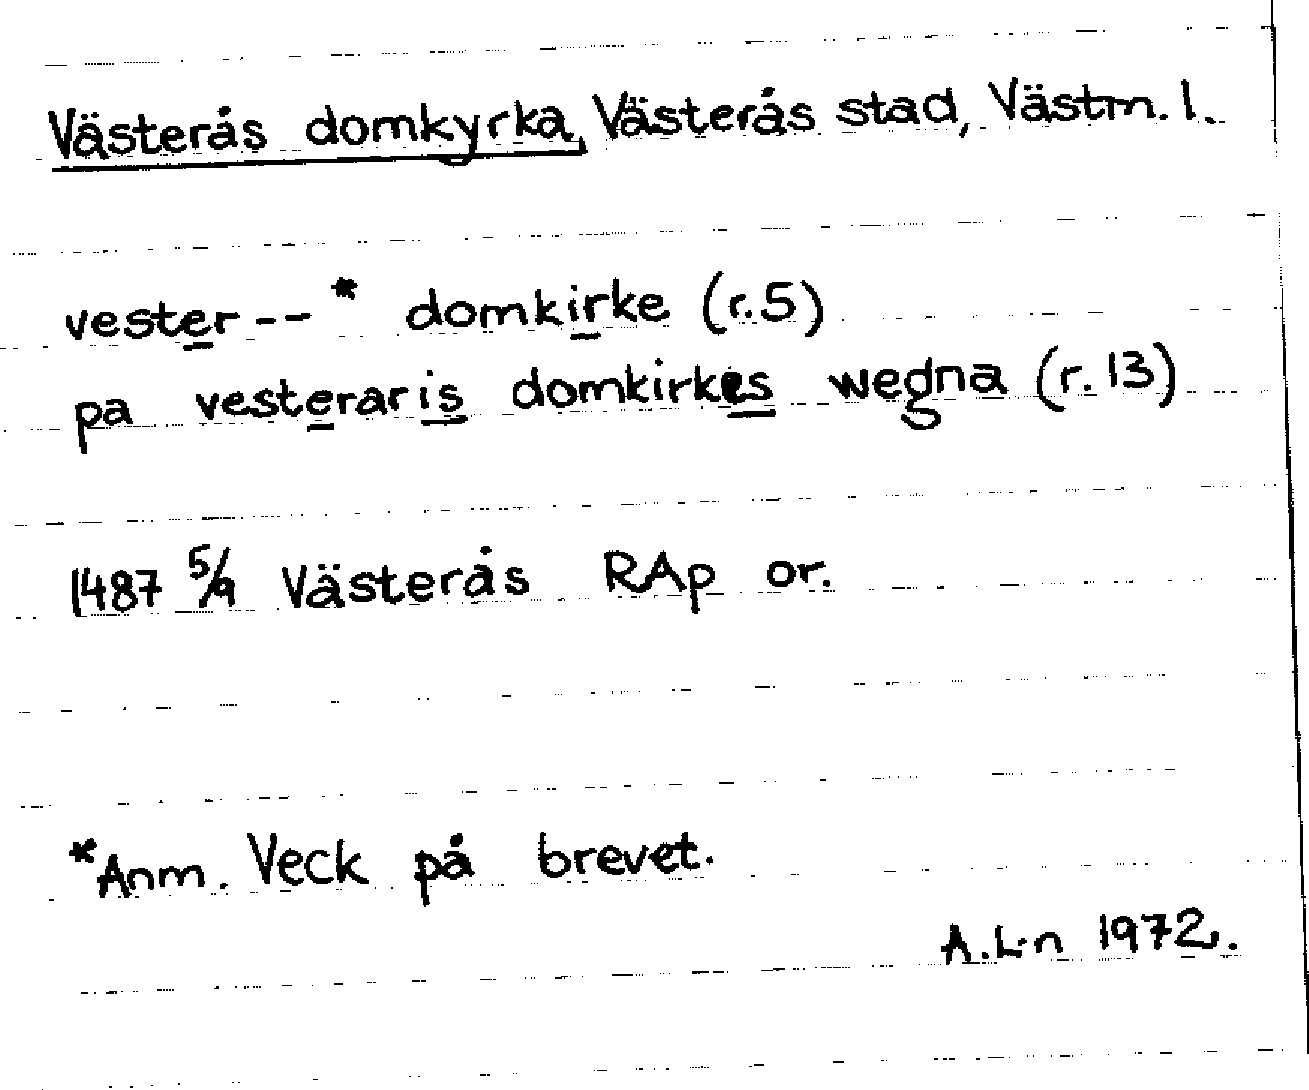 Västerås domkyrka, Västerås stad, Västm. l.
vester--* domkirke (r.5)
pa vesteraris domkirkes wegna (r.13)
1487 5/9 Västerås RAp or.
*Anm. Veck på brevet.
A.L-n 1972.